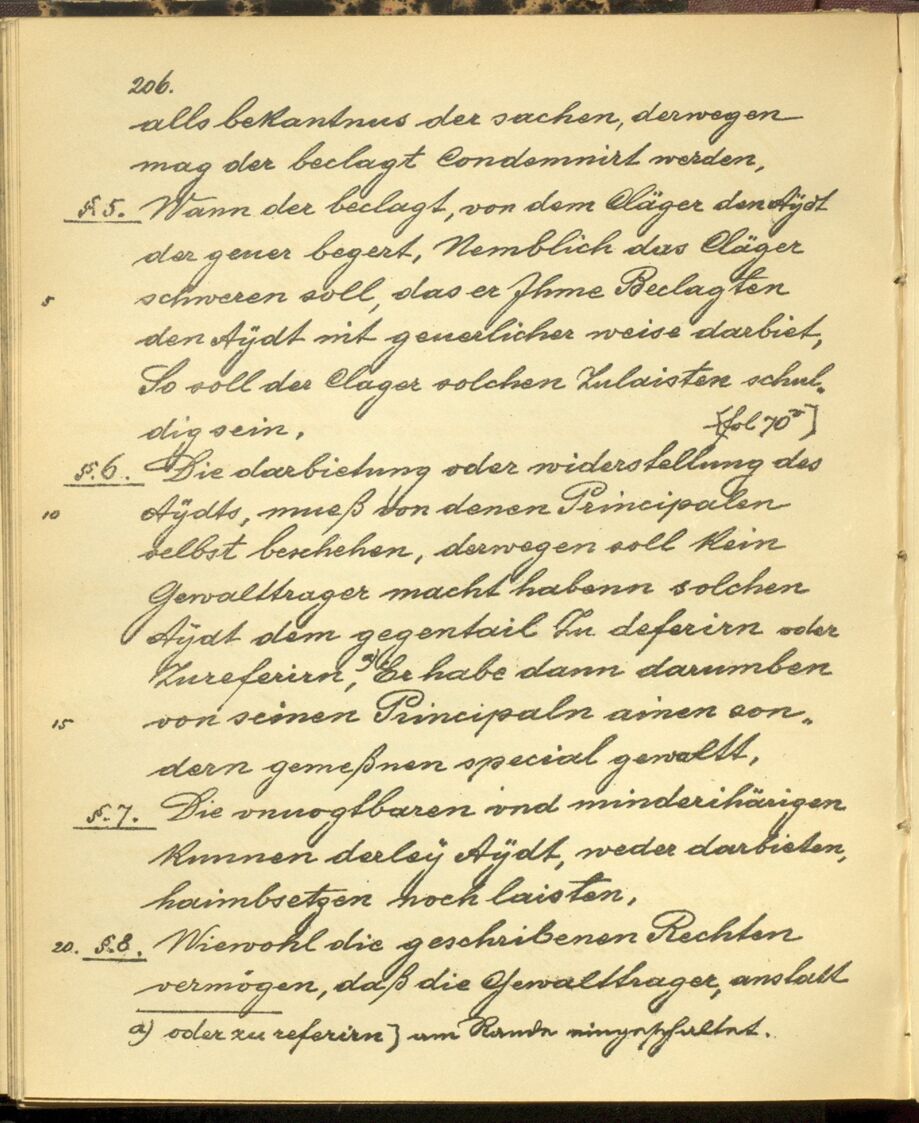 206.
alls bekantnus der sachen, derwegen
mag der beclagt Condemnirt werden,
§ 5. Wann der beclagt, von dem Cläger den Aÿdt
der geuer begert, Nemblich das Cläger
5 schweren soll, das er Ihme Beclagten
den Aÿdt nit geuerlicher weise darbiet,
So soll der Clager solchen Zulaisten schul„
dig sein, [fol 70v]
§. 6. Die darbietung oder widerstellung des
10 Aÿdts, mueß von denen Principalen
selbst beschehen, derwegen soll kein
Gewalttrager macht habenn solchen
Aÿdt dem gegentail Zu deferirn oder
Zureferirn, a) Er habe dann darumben
15 von seinen Principaln ainen son„
dern gemeßnen special gewaltt,
§. 7. Die vnuogtbaren vnd minderihärigen
kunnen derleÿ Aÿdt, weder darbieten,
haimbsetzen noch laisten,
20. §. 8. Wiewohl die geschribenen Rechten
vermögen, daß die Gewalttrager, anstatt
a) oder zu referirn] am Rande eingeschaltet.